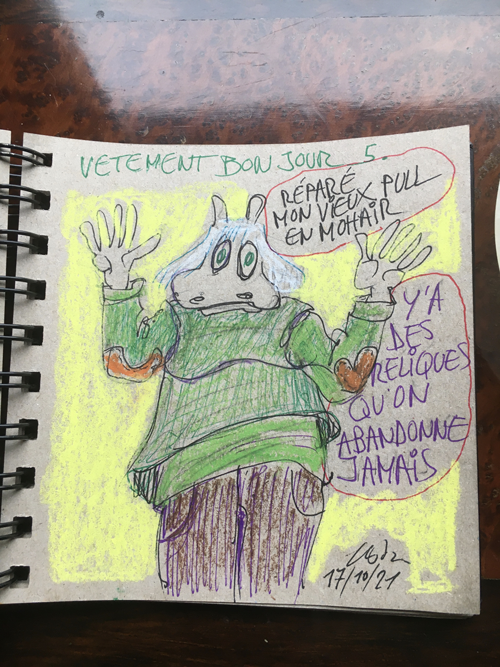 VETEMENT BON JOUR 5.
RÉPARÉ
MON VIEUX PULL
EN MOHAIR
Y'A
DES
RELIQUES
QU'ON
ABANDONNE
JAMAIS
17/10/21